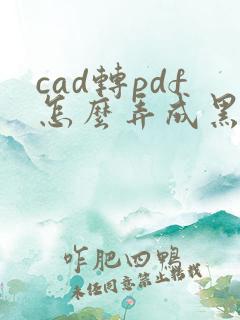 cad轉pdf
怎麼弄成黑
咋肥四鴨
未经同意禁止转载